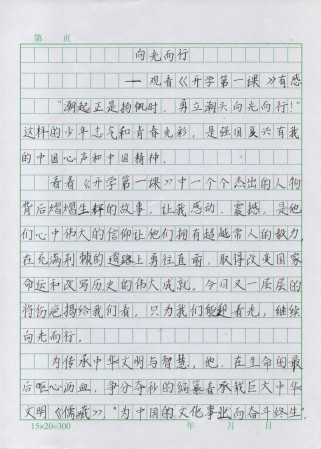 第 页
向光而行
——观看《开学第一课》有感
"潮起正是扬帆时，勇立潮头向光而行！"
这样的少年志气和青春光彩，是强国复兴有我
的中国心声和中国精神。
看着《开学第一课》中一个个杰出的人物
背后熠熠生辉的故事，让我感动、震撼。是他
们心中伟大的信仰让他们拥有超越常人的毅力，
在充满荆棘的道路上勇往直前，取得改变国家
命运和改写历史的伟大成就。今日又一层层的
将伤疤揭给我们看，只为我们能起着光，继续
向光而行。
为传承中华文明与智慧，他，在生命的最
后呕心沥血，争分夺秒的编纂着承载巨大中华
文明《儒藏》，"为中国的文化事业而奋斗终生"，
15×20=300 年 月 日